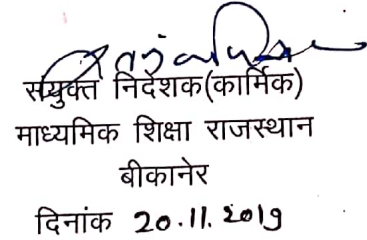 संयुक्त निदेशक(कार्मिक)
माध्यमिक शिक्षा राजस्थान
बीकानेर
दिनांक 20.11.2019